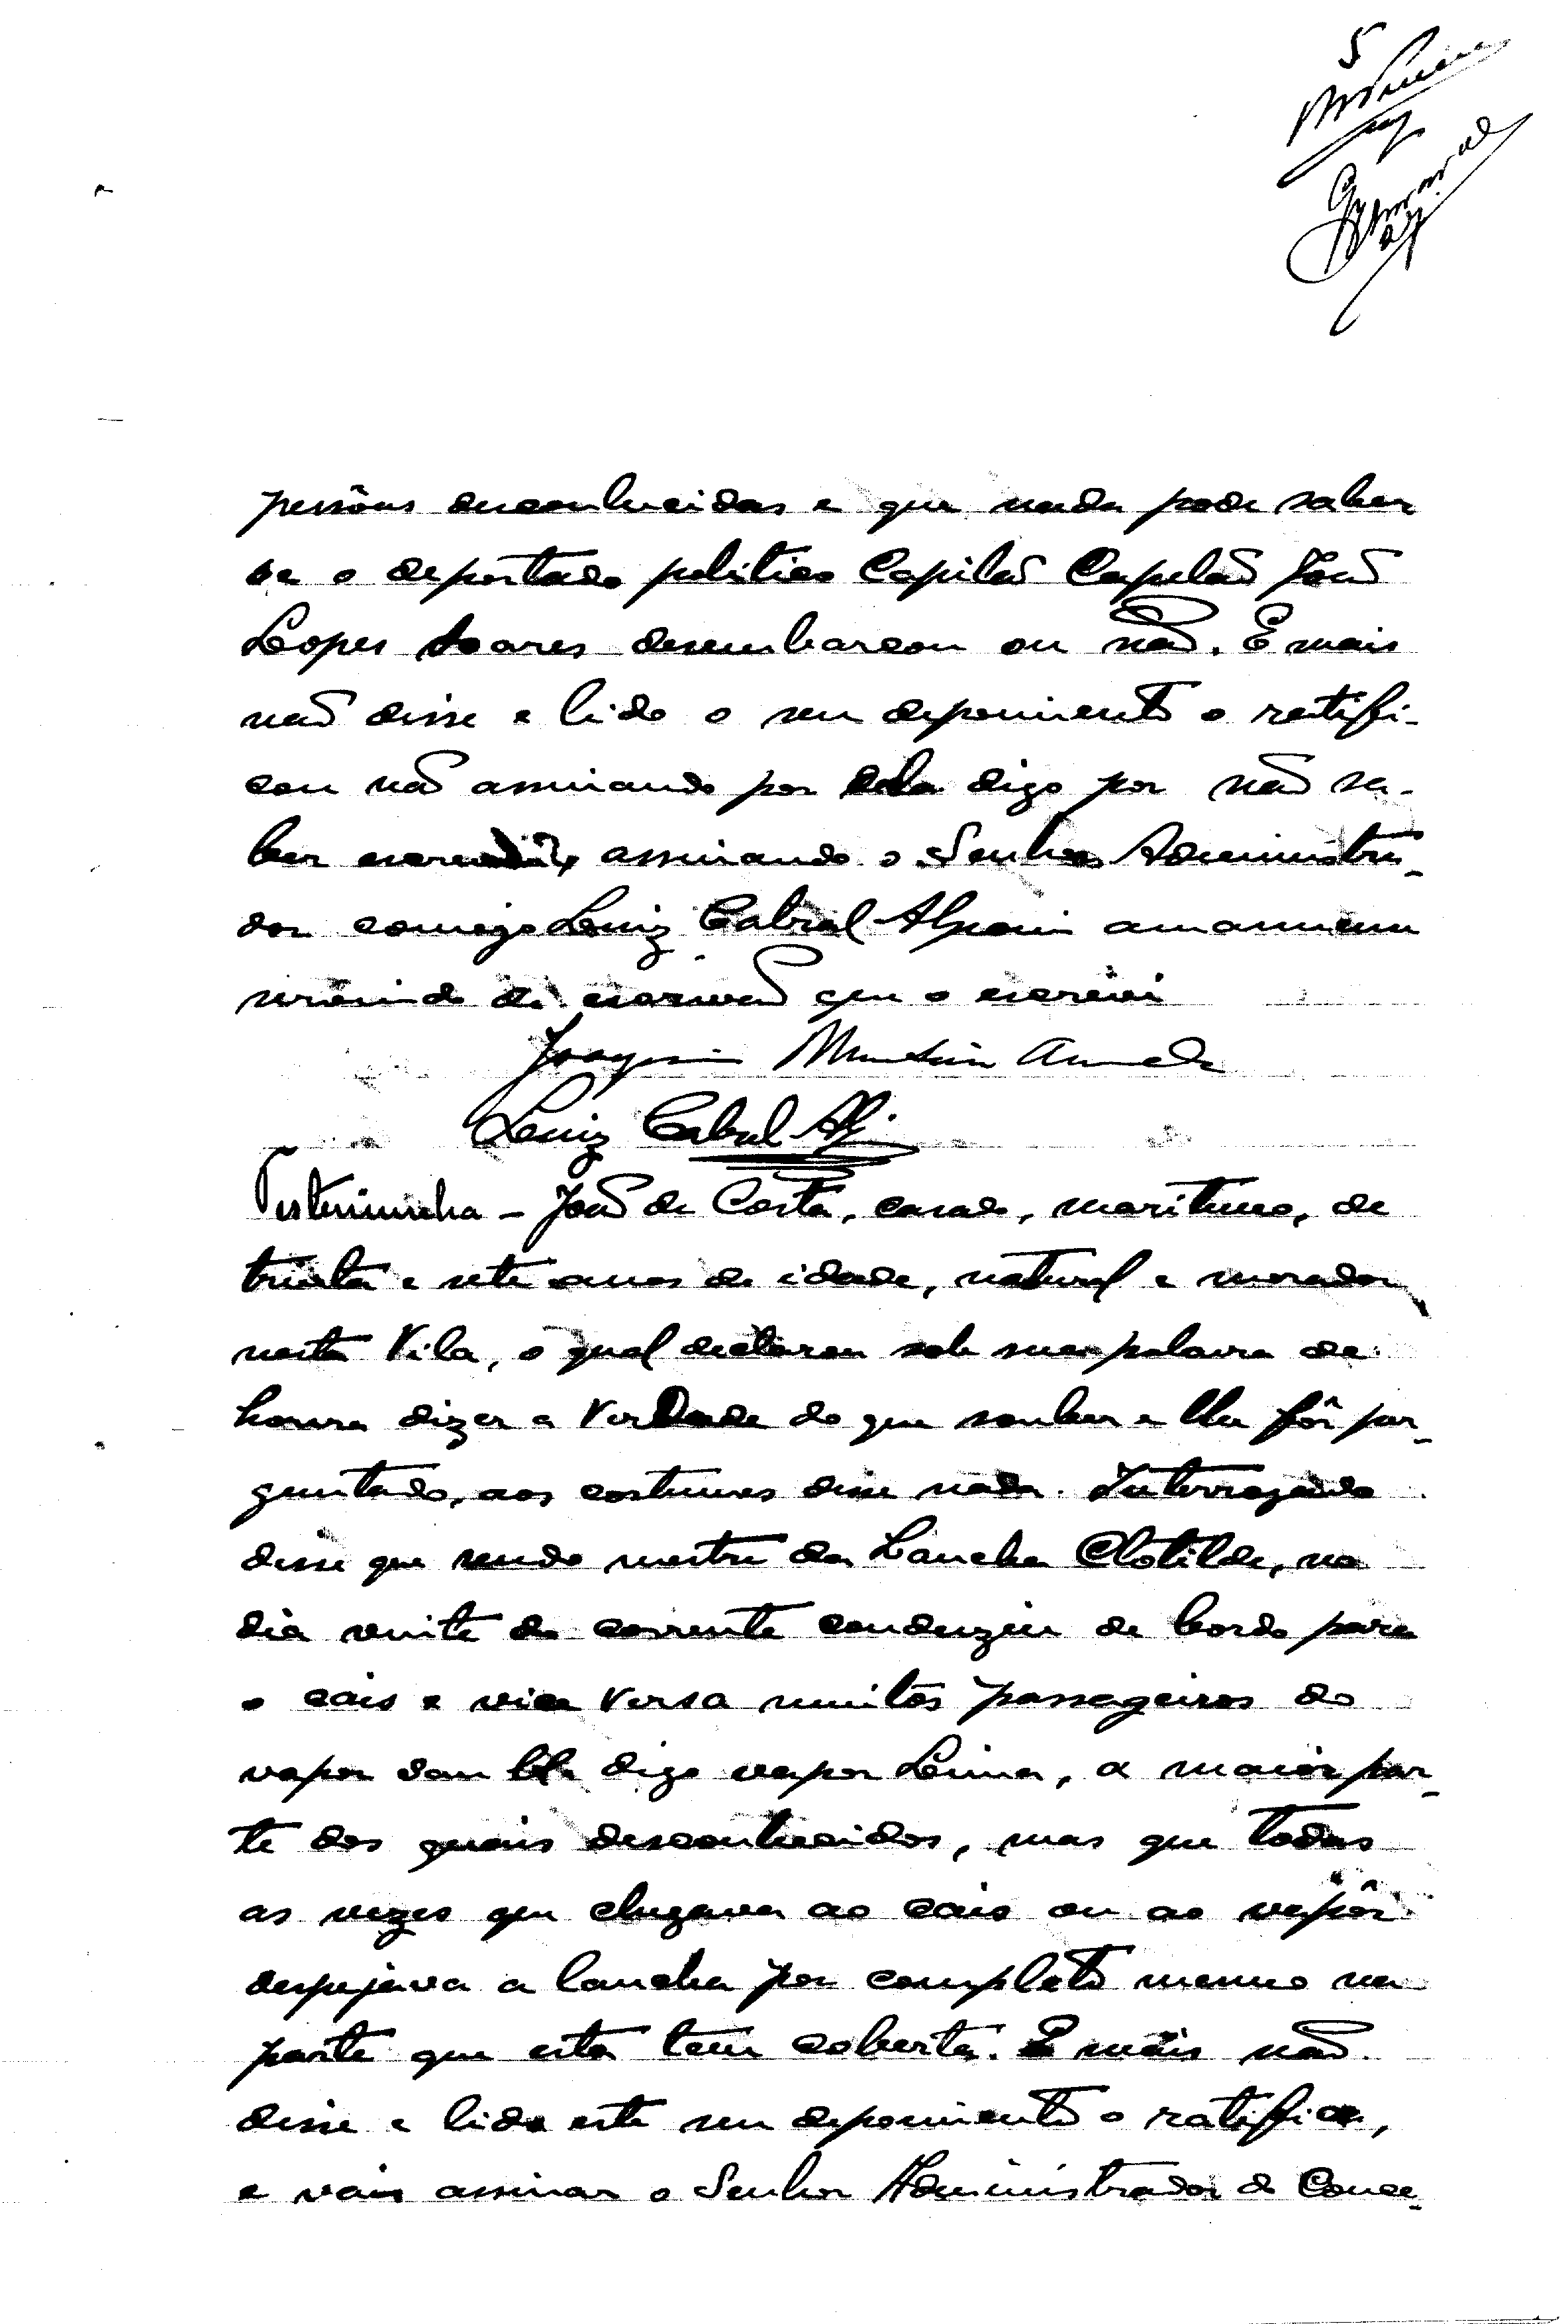 5
pessôas desconhecidas e que nada pode saber
se o deportado politico Capitaõ Capelaõ Joaõ
Lopes Soares desembarcou ou naõ. E mais
naõ disse e lido o seu depoimento o ratifi-
cou naõ assinando por digo por naõ sa-
ber escrever, assinando o Senhor Administra-
dor comigo Luiz Cabral Alpoim amanuense
servindo de escrivaõ que o escrevi
Joaquim
Luiz Cabral Alp.
Testemunha – Joaõ da Costa, casado, maritimo, de
trinta e sete anos de idade, natural e morador
nesta Vila, o qual declarou sob sua palavra de
honra dizer a Verdade do que souber e lhe fôr per-
guntado, aos costumes disse nada. Interrogado
disse que sendo mestre da Lancha Clotilde, no
dia vinte do corrente conduziu de bordo para
o cais e vice Versa muitos passageiros do
vapor digo vapor Lima, a maior par-
te dos quais desconhecidos, mas que todas
as vezes que chegava ao cais ou ao vapôr
despejava a lancha por completo mesmo na
parte que esta tem coberta. E mais naõ
disse e lido este seu depoimento o ratifica,
e vais assinar o Senhor Administrador do Conce-